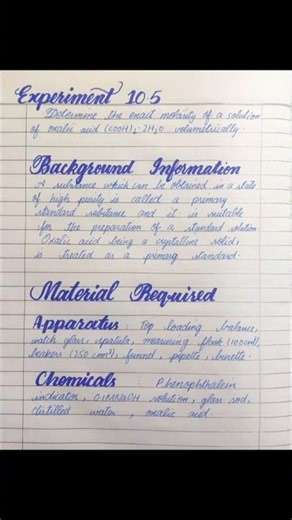 Experiment 10.5
Determine the exact molarity of a solution
of oxalic acid (COOH)₂·2H₂O volumetrically.
Background Information
A substance which can be obtained in a state
of high purity is called a primary
standard substance and it is suitable
for the preparation of a standard solution
Oxalic acid being a crystalline solid,
is treated as a primary standard.
Material Required
Apparatus : Top loading balance,
watch glass, spatula, measuring flask (100cm³),
beakers (250 cm³), funnel, pipette, burette.
Chemicals : Phenophthalein
indicator, 0.1M NaOH solution, glass rod,
distilled water, oxalic acid.